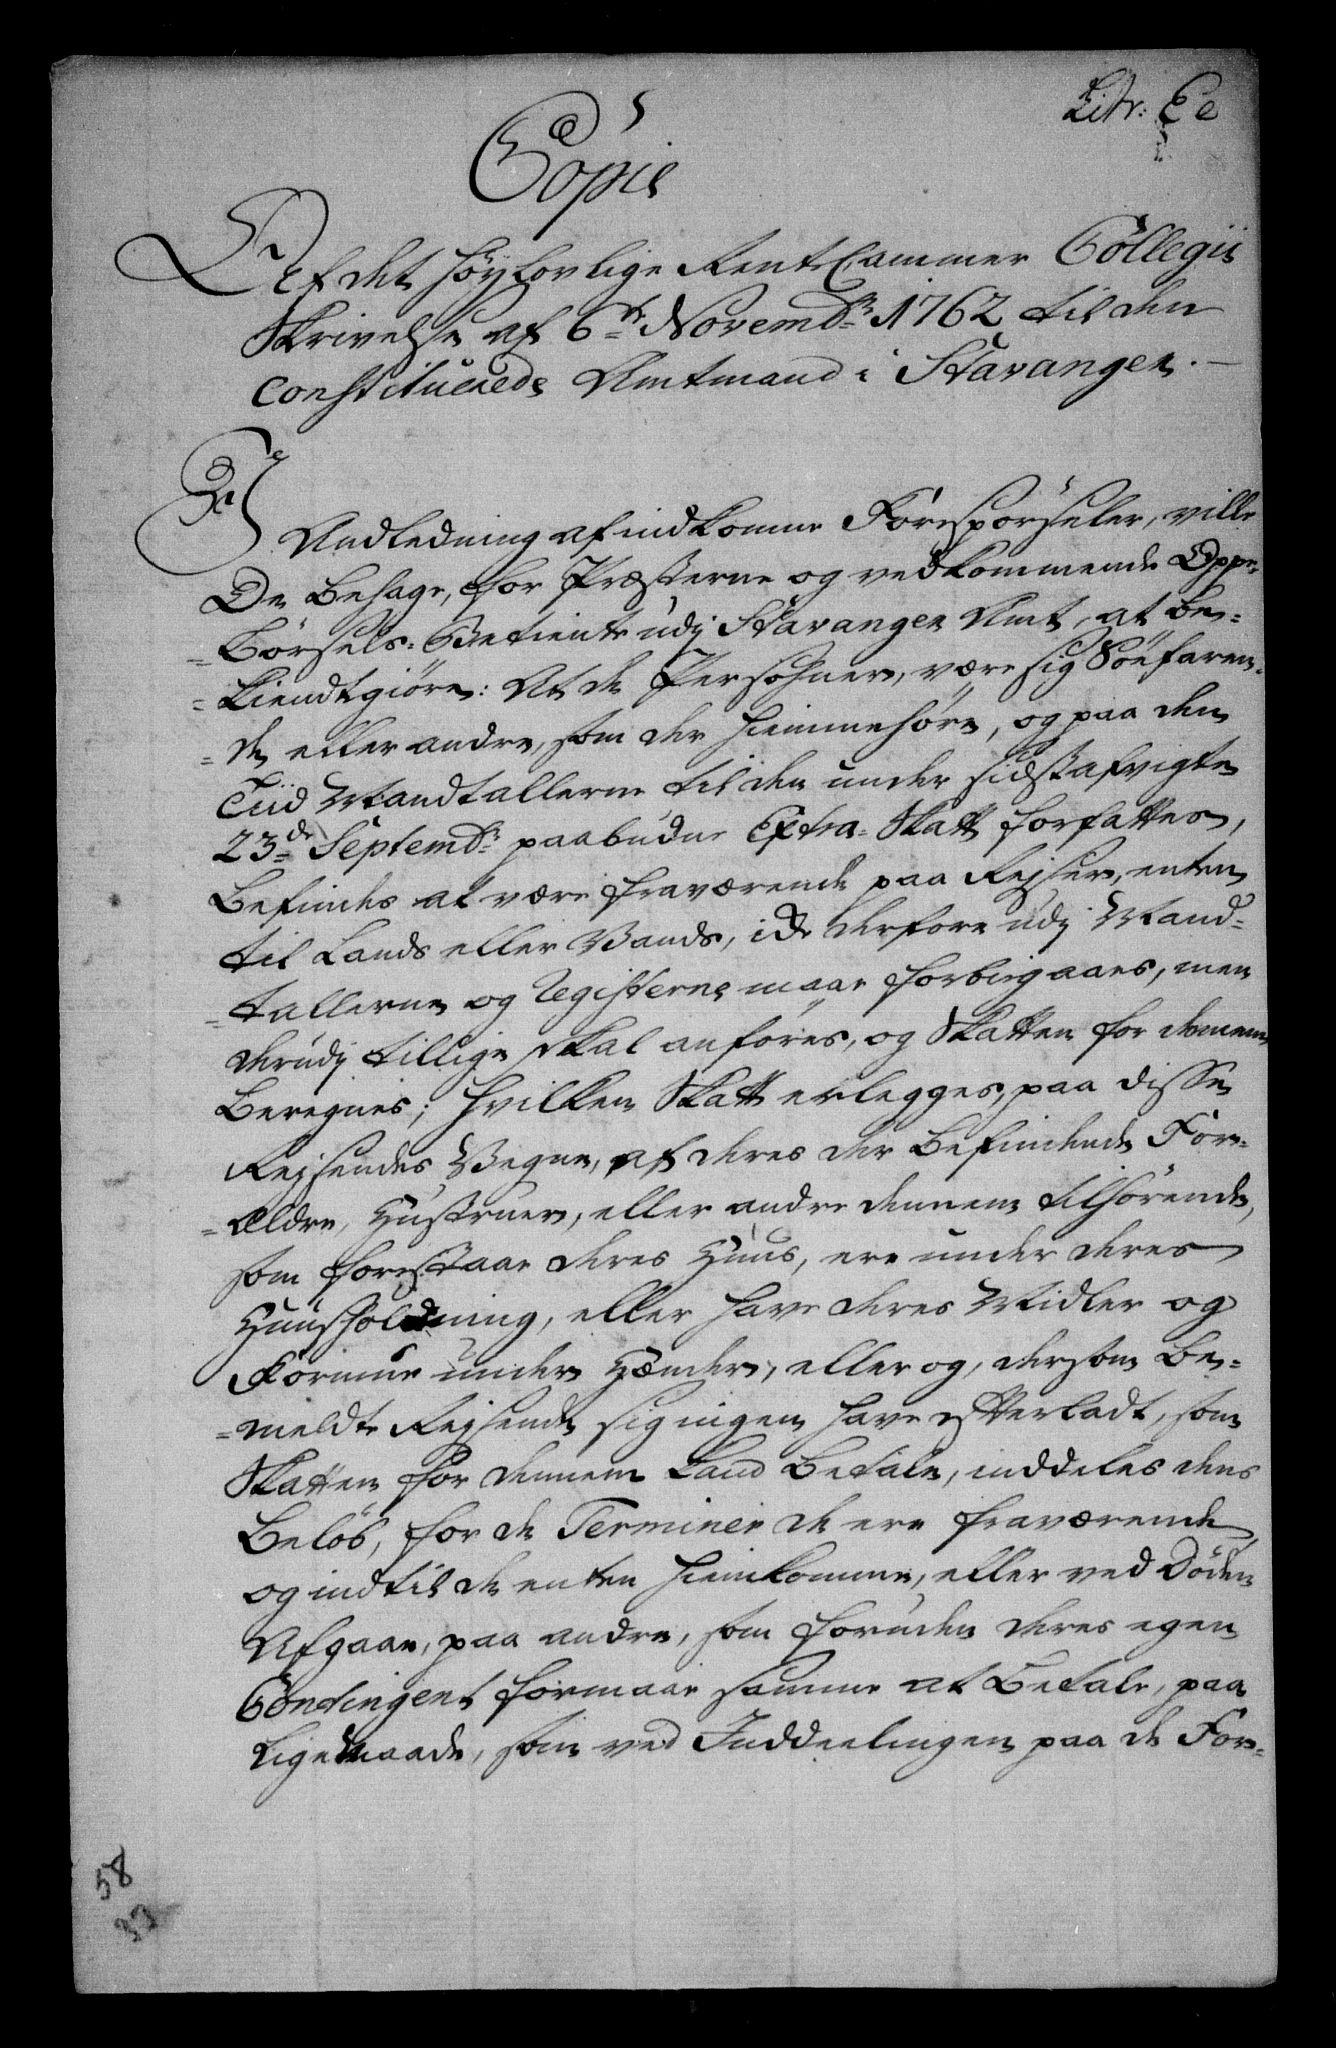 Litr: Ee
Copie
Af det høylovlige RentCammer Collegii
Skrivelse af 6te Novembr 1762 til den
constituerede Amtmand i Stavanger.
I Andledning af indkomne Forespørseler, ville
De behage, for Præsterne og vedkommende Oppe-
-børsels-Betiente udj Stavanger Amt, at be-
-kiendtgiøre: At de Persohner, være sig Söefaren-
-de eller andre, som der hiemmehøre, og paa den
Tiid Mandtallerne til den under sidstafvigte
23de Septembr paabudne Extra-Skatt forfattes,
befindes at være fraværende paa Rejser, enten
til Lands eller Vands, ej derfore udj Mand-
-tallerne og Registerne maae forbiegaaes, men
derudj tillige skal anføres, og Skatten for dennem
beregnes; hvilken Skatt erlegges, paa disse
Rejsendes Vegne, af deres der befindende For-
-ældre, Hustruer, eller andre dennem tilhørende,
som forestaae deres Huus, ere under deres
Huusholdning, eller have deres Midler og
Formue under Hænder, eller og, dersom be-
-meldte Rejsende sig ingen have efterladt, som
Skatten for dennem kand betale, inddeles dens
Beløb, for de Terminer de ere fraværende,
og indtil de enten hiemkomme, eller ved Døden
Afgaae, paa andre, som foruden deres egen
Contingent formaae samme at betale, paa
ligemaade, som ved Inddeelingen paa de For-
58